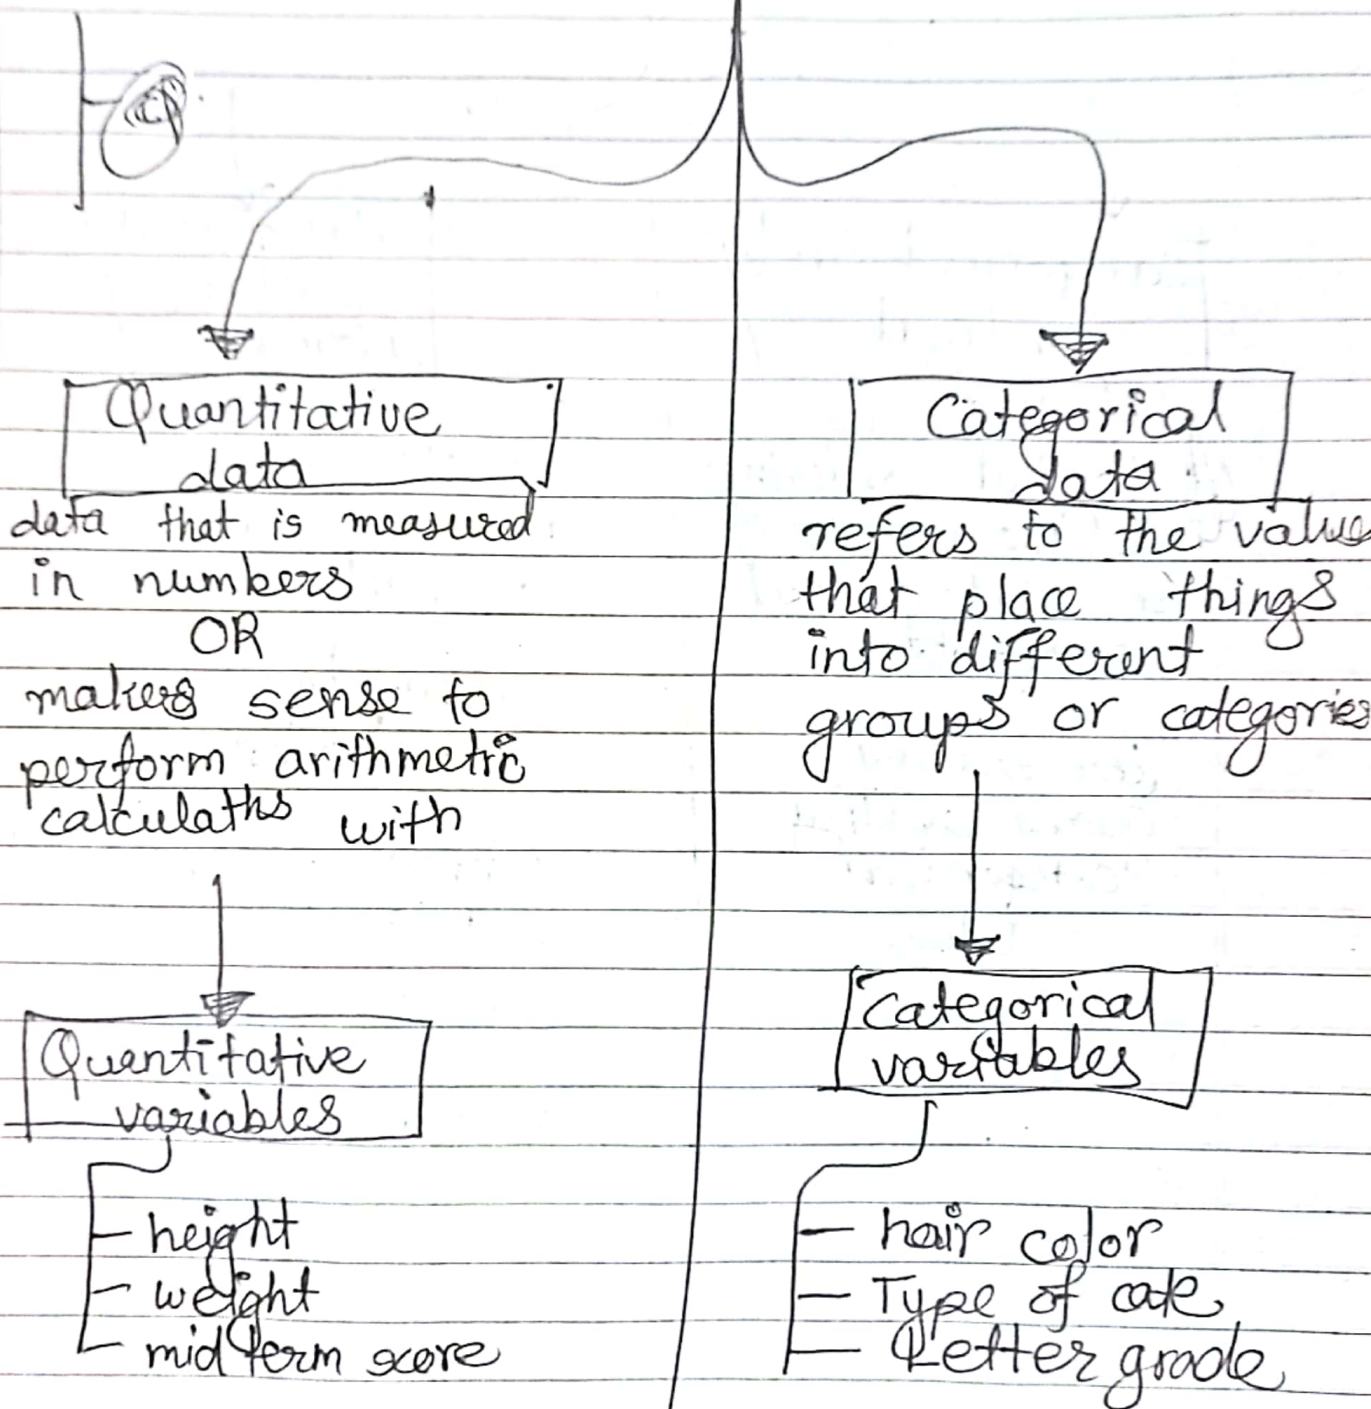 Quantitative
data
data that is measured
in numbers
OR
makes sense to
perform arithmetic
calculaths with
Quantitative
variables
height
weight
mid term score
Categorical
data
refers to the value
that place things
into different
groups or categories
Categorical
variables
hair color
Type of
Letter grade